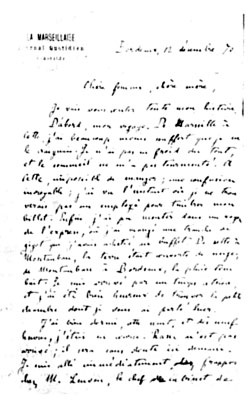 LA MARSEILLAISE
Journal Quotidien
Bordeaux, 12 décembre 70
Chère femme, chère mère,
Je vais vous conter toute mon histoire.
D'abord, mon voyage. De Marseille à
Cette j'ai beaucoup moins souffert que je ne
le craignais. Je n'ai pas eu froid du tout,
et le sommeil ne m'a pas tourmenté. A
Cette, impossible de manger; une confusion
incroyable; j'ai vu l'instant où je ne trou
verais pas un employé pour timbrer mon
billet. Enfin j'ai pu monter dans un wagon
de l'express, où j'ai mangé une tranche de
gigot que j'avais achetée au buffet. De Cette à
Montauban, la terre était couverte de neige;
de Montauban à Bordeaux, la pluie tom
bait. Je suis arrivé par un temps atroce,
et j'ai été bien heureux de trouver la petite
chambre dont je dois parler
J'ai bien dormi, cette nuit, et dès neuf
heures, j'étais en course.
venu; il sera sans doute ici demain.
Je suis allé immédiatement frapper
chez M. le chef de cabinet de